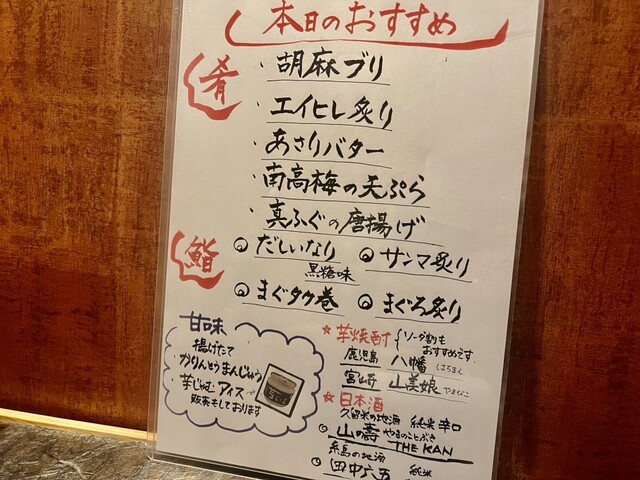 本日のおすすめ
肴
・胡麻ブリ
・エイヒレ炙り
・あさりバター
・南高梅の天ぷら
・真ふぐの唐揚げ
鮨
だしいなり
黒糖味
サンマ炙り
まぐタク巻
まぐろ炙り
甘味
揚げたて
かりんとうまんじゅう
芋じゃむアイス
販売もしております
★芋焼酎
ソーダ割も
おすすめです
鹿児島 八幡 はちまん
宮崎 山美娘 やまびこ
★日本酒
久留米の地酒 純米辛口
山の壽 やまのことぶき
THE KAN
糸島の地酒
田中六五 純米